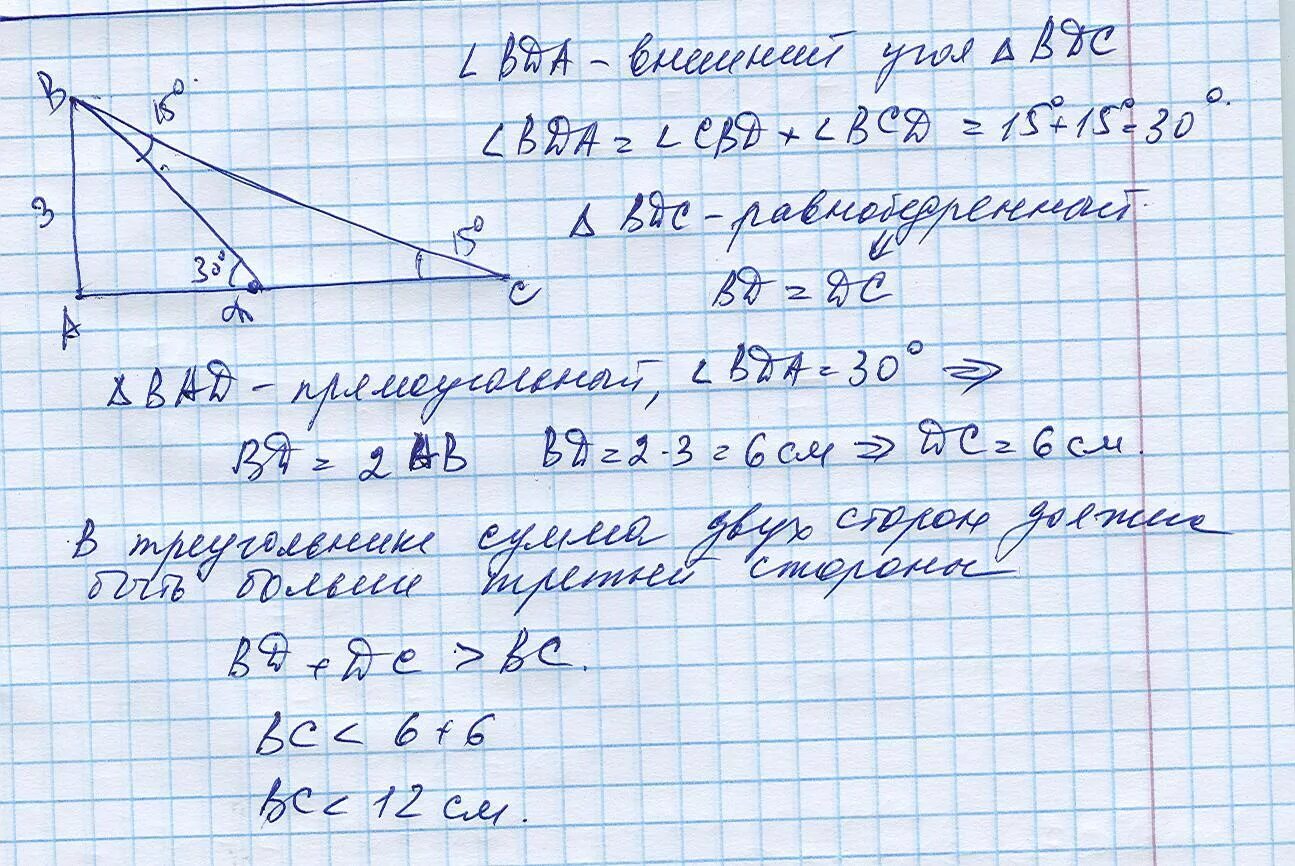 ∠BDA – внешний угол △BDC
B
15°
∠BDA = ∠CBD + ∠BCD = 15° + 15° = 30°.
3
△BDC – равнобедренный
15°
30°
⇓
BD = DC
A
D
C
△BAD – прямоугольный, ∠BDA = 30° ⇒
BD = 2 AB BD = 2·3 = 6 см ⇒ DC = 6 см.
В треугольнике сумма двух сторон должна
быть больше третьей стороны
BD + DC > BC.
BC < 6 + 6
BC < 12 см.